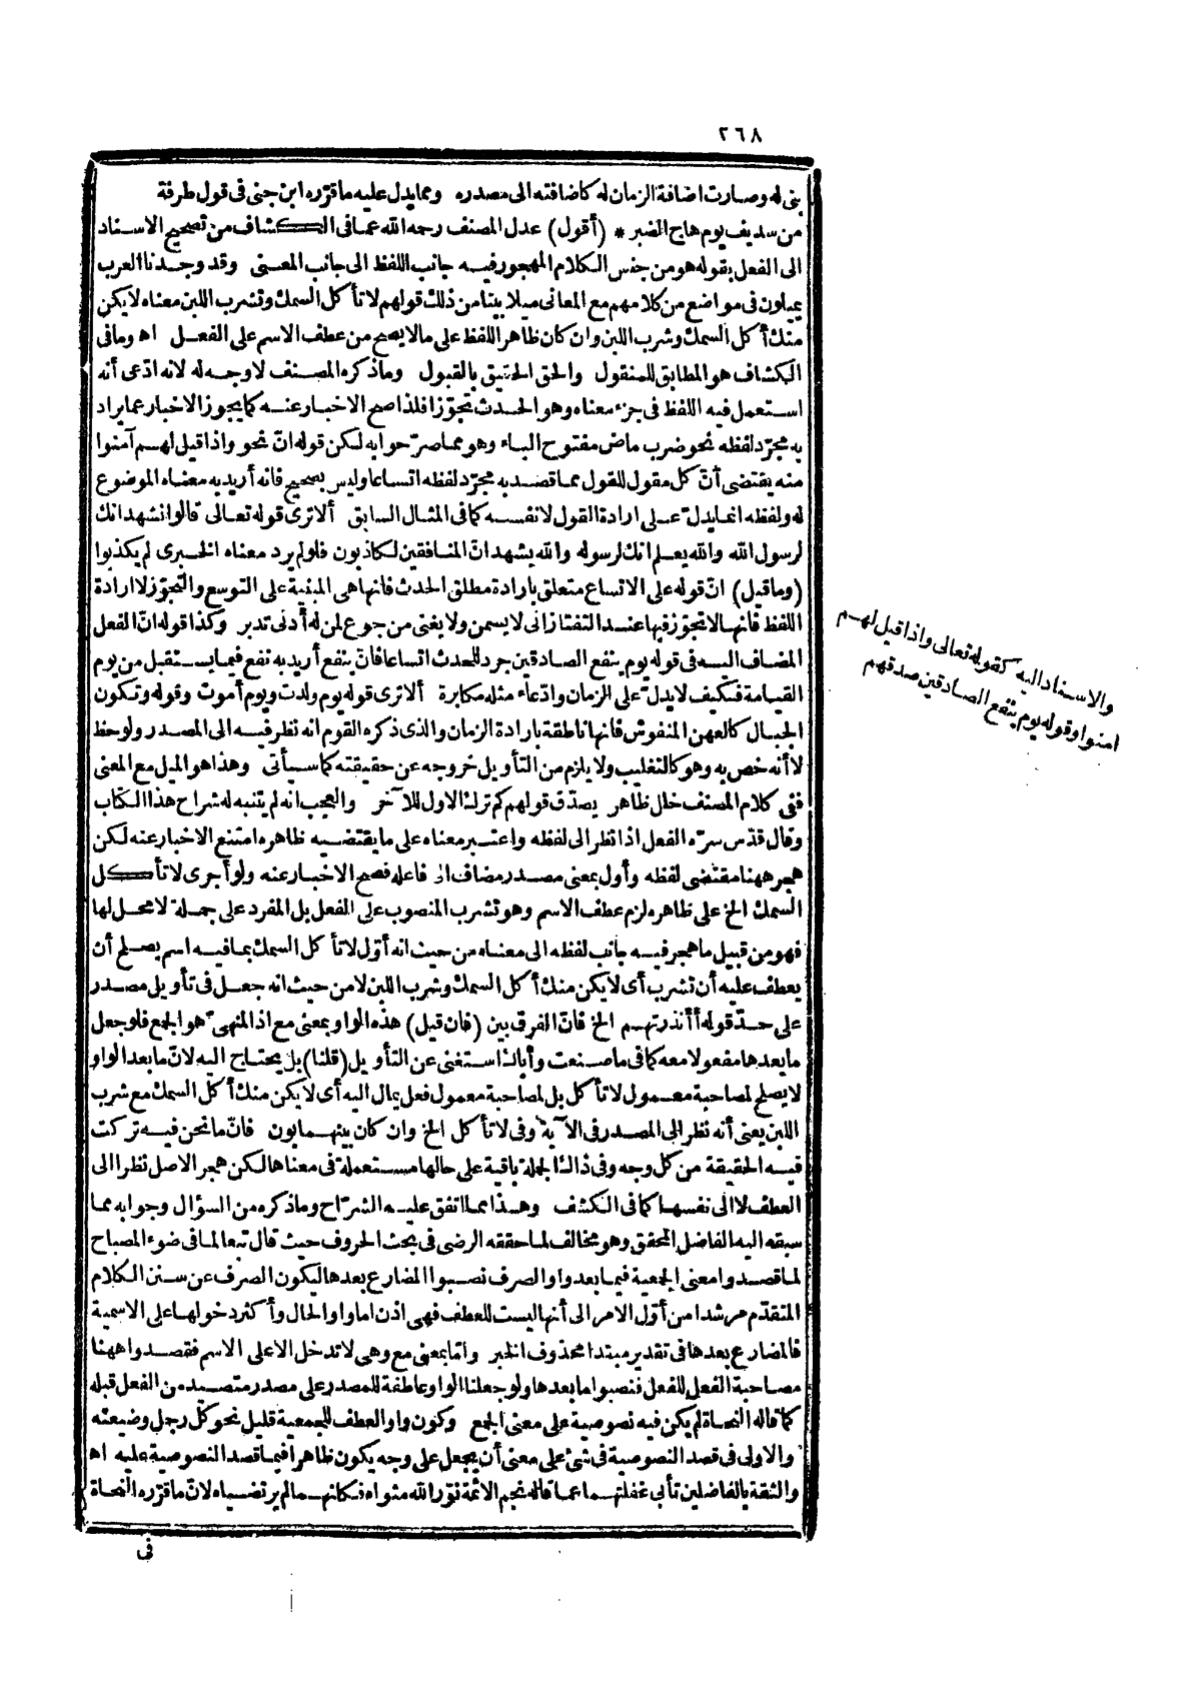 ٢٦٨
بنى له وصارت اضافة الزمان له كاضافته الى مصدره وممايدل عليه ماقرّره ابن جنى فى قول طرفة
من سديف يوم هاج الضبر * (أقول) عدل المصنف رحمه الله عما فى الكشاف من تصحيح الاسناد
الى الفعل بقوله هو من جنس الكلام المهجور فيه جانب اللفظ الى جانب المعنى وقد وجدنا العرب
يميلون فى مواضع من كلامهم مع المعانى ميلا بينا من ذلك قولهم لا تأكل السمك وتشرب اللبن معناه لا يكن
منك أكل السمك وشرب اللبن وان كان ظاهر اللفظ على مالا يصح من عطف الاسم على الفعل اه ومافى
الكشاف هو المطابق للمنقول والحق الحقيق بالقبول وماذكره المصنف لا وجه له لانه ادّعى أنه
استعمل فيه اللفظ فى جزء معناه وهو الحدث تجوّزا فلذا صح الاخبار عنه كما يجوز الاخبار عما يراد
به مجرّد لفظه نحو ضرب ماض مفتوح الباء وهو مما صرّحوا به لكن قوله انّ نحو واذا قيل لهم آمنوا
منه يقتضى أنّ كل مقول للقول مما قصد به مجرّد لفظه اتساعا وليس بصحيح فانه أريد به معناه الموضوع
له ولفظه انما يدلّ على ارادة القول لا نفسه كما فى المثال السابق ألا ترى قوله تعالى قالوا نشهد انك
لرسول الله والله يعلم انك لرسوله والله يشهد انّ المنافقين لكاذبون فلو لم يرد معناه الخبرى لم يكذبوا
(وما قيل) انّ قوله على الاتساع متعلق بارادة مطلق الحدث فانها هى المبنية على التوسع والتجوّز لا ارادة
اللفظ فانها لا تجوّز فيها عند التفتازانى لا يسمن ولا يغنى من جوع لمن له أدنى تدبر وكذا قوله انّ الفعل
المضاف اليه فى قوله يوم ينفع الصادقين جرد للحدث اتساعا فانّ ينفع أريد به نفع فيما يستقبل من يوم
القيامة فكيف لا يدلّ على الزمان وادّعاء مثله مكابرة ألا ترى قوله يوم ولدت ويوم أموت وقوله وتكون
الجبال كالعهن المنفوش فانها ناطقة بارادة الزمان والذى ذكره القوم انه نظر فيه الى المصدر ولوحظ
لا أنه خص به وهو كالتغليب ولا يلزم من التأويل خروجه عن حقيقته كما سيأتى وهذا هو الميل مع المعنى
ففى كلام المصنف خلل ظاهر يصدّق قولهم كم ترك الاول للآخر والعجب انه لم يتنبه له شراح هذا الكتاب
وقال قدّس سرّه الفعل اذا نظر الى لفظه واعتبر معناه على ما يقتضيه ظاهره امتنع الاخبار عنه لكن
هجر ههنا مقتضى لفظه وأول بمعنى مصدر مضاف الى فاعله فصح الاخبار عنه ولو أجرى لا تأكل
السمك الخ على ظاهره لزم عطف الاسم وهو تشرب المنصوب على الفعل بل المفرد على جملة لا محل لها
فهو من قبيل ما هجر فيه جانب لفظه الى معناه من حيث انه أوّل لا تأكل السمك بما فيه اسم يصلح أن
يعطف عليه أن تشرب أى لا يكن منك أكل السمك وشرب اللبن لا من حيث انه جعل فى تأويل مصدر
على حدّ قوله أأنذرتهم الخ فانّ الفرق بين (فان قيل) هذه الواو بمعنى مع اذ المنهىّ هو الجمع فلو جعل
ما بعدها مفعولا معه كما فى ما صنعت وأباك استغنى عن التأويل (قلنا) بل يحتاج اليه لانّ ما بعد الواو
لا يصلح لمصاحبة معمول لا تأكل بل لمصاحبة معمول فعل يمال اليه أى لا يكن منك أكل السمك مع شرب
اللبن يعنى أنه نظر الى المصدر فى الآية وفى لا تأكل الخ وان كان بينهما بون فانّ ما نحن فيه تركت
فيه الحقيقة من كل وجه وفى ذاك الجملة باقية على حالها مستعملة فى معناها لكن هجر الاصل نظرا الى
العطف لا الى نفسها كما فى الكشف وهذا مما اتفق عليه الشرّاح وما ذكره من السؤال وجوابه مما
سبقه اليه الفاضل المحقق وهو مخالف لما حققه الرضى فى بحث الحروف حيث قال تبعا لما فى ضوء المصباح
لما قصدوا معنى الجمعية فيما بعد واو الصرف نصبوا المضارع بعدها ليكون الصرف عن سنن الكلام
المتقدّم مرشدا من أوّل الامر الى أنها ليست للعطف فهى اذن اما واو الحال وأكثر دخولها على الاسمية
فالمضارع بعدها فى تقدير مبتدا محذوف الخبر واما بمعنى مع وهى لا تدخل الا على الاسم فقصدوا ههنا
مصاحبة الفعل للفعل فنصبوا ما بعدها ولو جعلنا الواو عاطفة للمصدر على مصدر متصيد من الفعل قبله
كما قاله النحاة لم يكن فيه نصوصية على معنى الجمع وكون واو العطف للجمعية قليل نحو كل رجل وضيعته
والاولى فى قصد النصوصية فى شئ على معنى أن يجعل على وجه يكون ظاهرا فيما قصد النصوصية عليه اه
والثقة بالفاضلين تأبى غفلتهما عما قاله نجم الائمة نوّر الله مثواه فكأنهما لم يرتضياه لانّ ما قرّره النحاة
فى
والاسناد اليه كقوله تعالى واذا قيل لهم
امنوا وقوله يوم ينفع الصادقين صدقهم